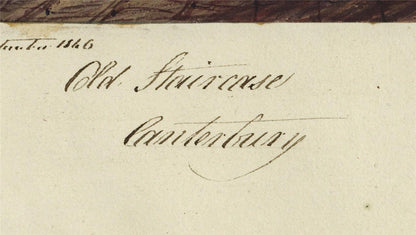 1846
Old Staircase
Canterbury